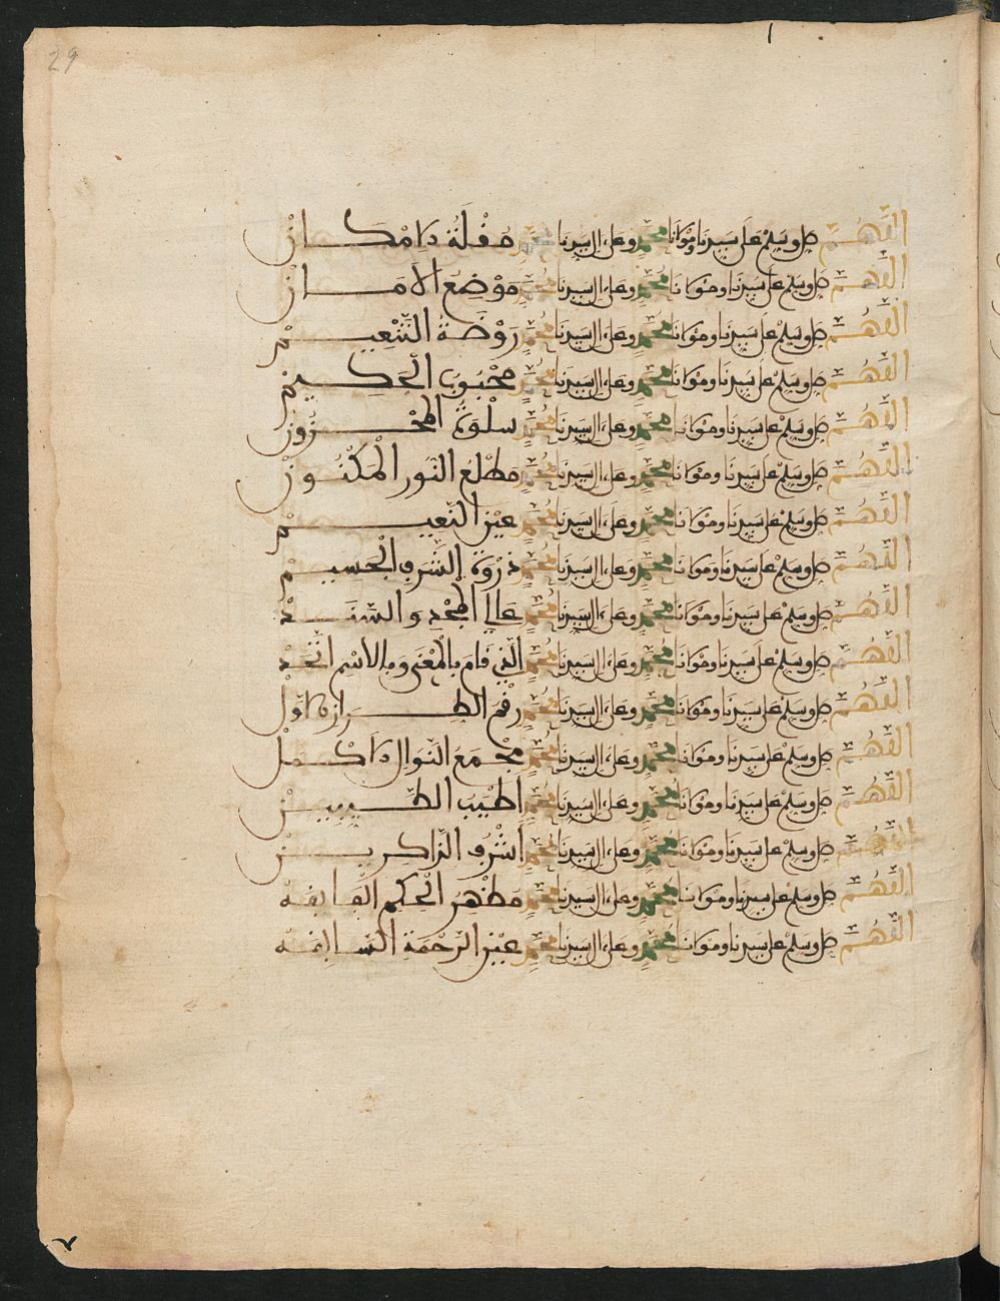 29
اللهم صل وسلم على سيدنا ومولانا محمد وعلى ءال سيدنا محمد مقلة الامكان
اللهم صل وسلم على سيدنا ومولانا محمد وعلى ءال سيدنا محمد موضع الامان
اللهم صل وسلم على سيدنا ومولانا محمد وعلى ءال سيدنا محمد روضة التنعيم
اللهم صل وسلم على سيدنا ومولانا محمد وعلى ءال سيدنا محمد محبوب الحكيم
اللهم صل وسلم على سيدنا ومولانا محمد وعلى ءال سيدنا محمد سلوة المحزون
اللهم صل وسلم على سيدنا ومولانا محمد وعلى ءال سيدنا محمد مطلع النور المكنون
اللهم صل وسلم على سيدنا ومولانا محمد وعلى ءال سيدنا محمد عين النعيم
اللهم صل وسلم على سيدنا ومولانا محمد وعلى ءال سيدنا محمد ذروة الشرف الجسيم
اللهم صل وسلم على سيدنا ومولانا محمد وعلى ءال سيدنا محمد عالي المجد والسند
اللهم صل وسلم على سيدنا ومولانا محمد وعلى ءال سيدنا محمد الذي قام بالمعنى وبالاسم اتحد
اللهم صل وسلم على سيدنا ومولانا محمد وعلى ءال سيدنا محمد رقم الطراز الاول
اللهم صل وسلم على سيدنا ومولانا محمد وعلى ءال سيدنا محمد مجمع النوال الاكمل
اللهم صل وسلم على سيدنا ومولانا محمد وعلى ءال سيدنا محمد اطيب الطيبين
اللهم صل وسلم على سيدنا ومولانا محمد وعلى ءال سيدنا محمد اشرف الذاكرين
اللهم صل وسلم على سيدنا ومولانا محمد وعلى ءال سيدنا محمد مظهر الحكم الفايقه
اللهم صل وسلم على سيدنا ومولانا محمد وعلى ءال سيدنا محمد عين الرحمة